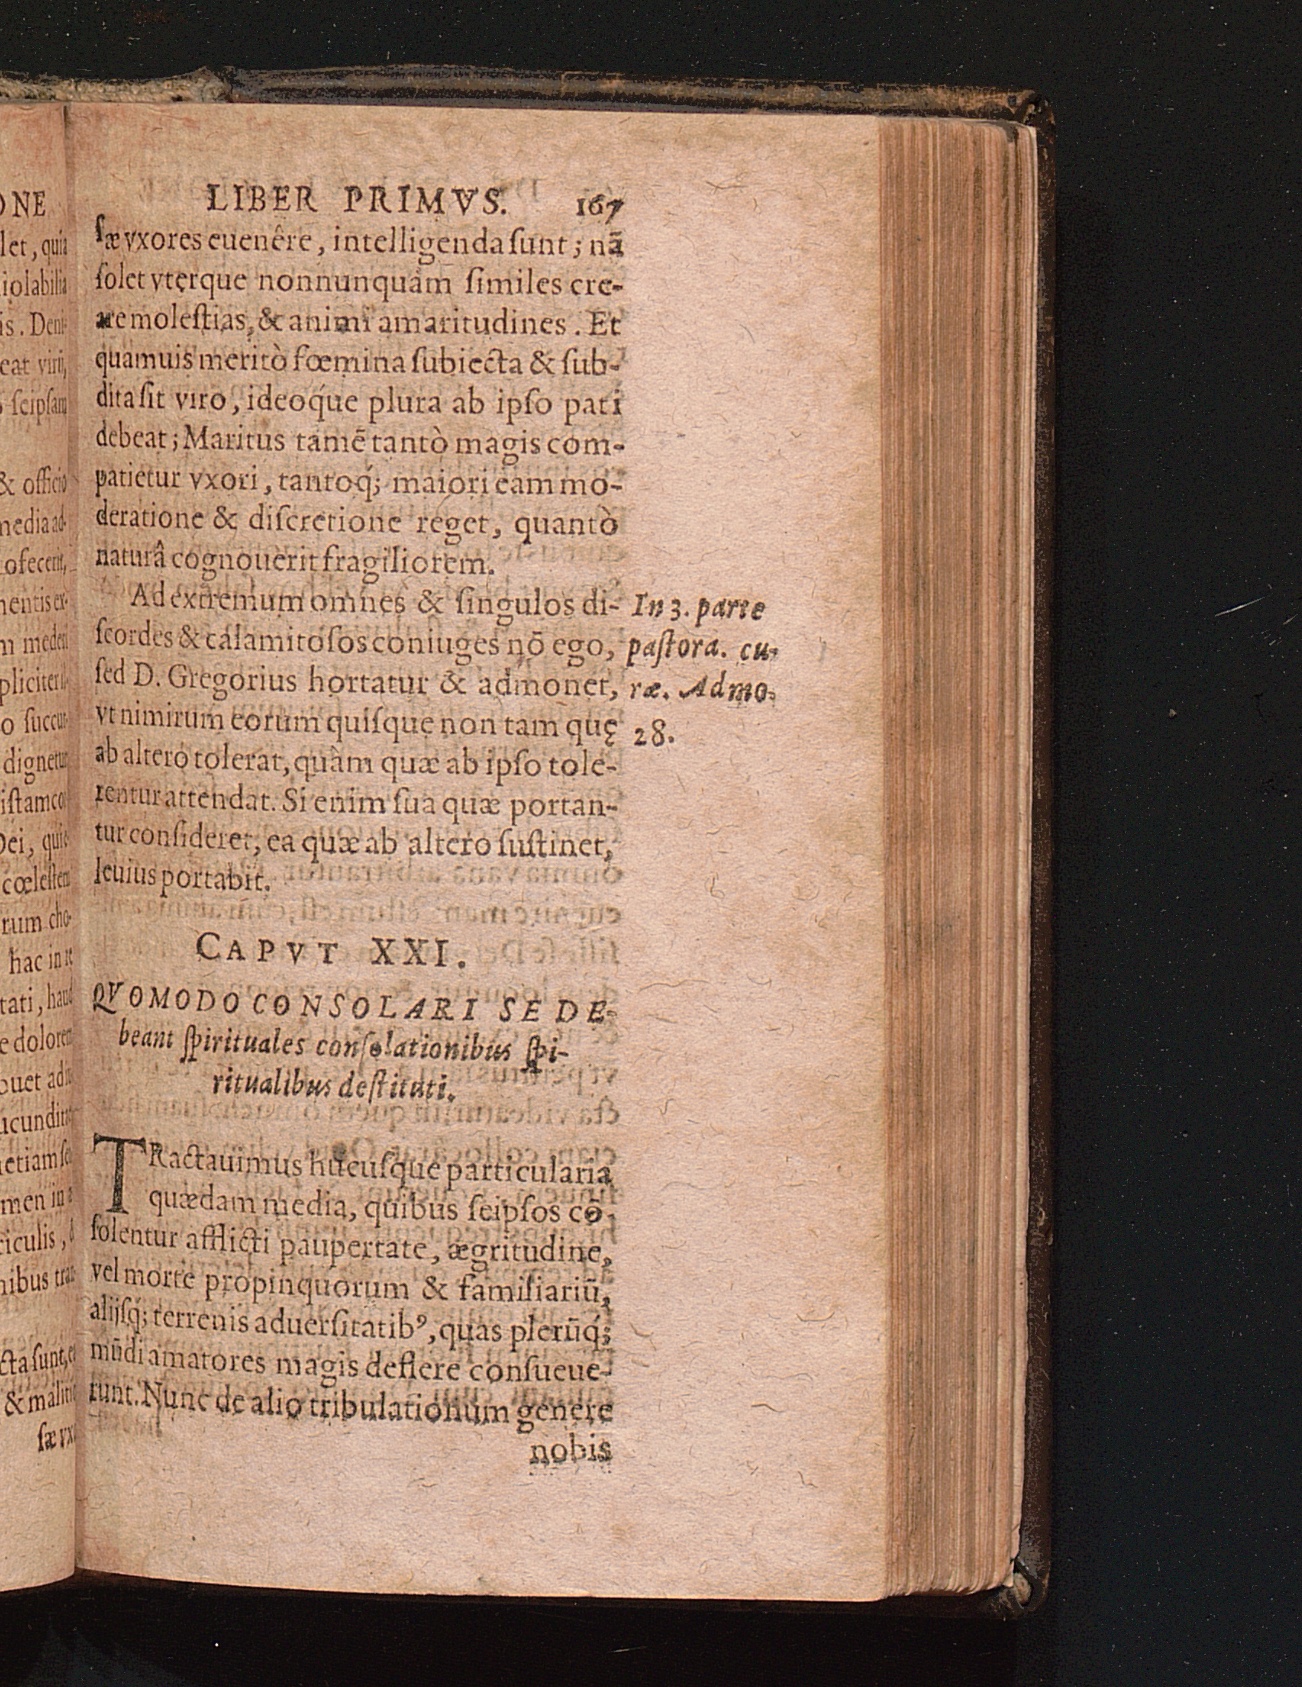 ONE
let, quia
iolabilia
is. Deni-
eat viri,
seipsam
& officio
media ad-
ofecerit,
mentis ex-
m meden
pliciter
o succur-
dignetur
istam
Dei, qui
cœlestem
rum cho-
hac in re
tati, haud
e dolorem
ouet
ucundita
etiam
men in
ticulis,
nibus
cta sunt,
& maliti
sæ vx
LIBER PRIMVS. 167
sæ vxores euenêre, intelligenda sunt; nã
solet vterque nonnunquàm similes cre-
are molestias, & animi amaritudines. Et
quamuis meritò fœmina subiecta & sub-
dita sit viro, ideoq́ue plura ab ipso pati
debeat; Maritus tamẽ tantò magis com-
patietur vxori, tantoq́; maiori eam mo-
deratione & discretione reget, quantò
naturâ cognouerit fragiliorem.
Ad extremum omnes & singulos di-
scordes & calamitosos coniuges nõ ego,
sed D. Gregorius hortatur & admonet,
vt nimirum eorum quisque non tam quę
ab altero tolerat, quàm quæ ab ipso tole-
rentur attendat. Si enim sua quæ portan-
tur consideret, ea quæ ab altero sustinet,
leuius portabit.
In 3. parte
pastora. cu-
ræ. Admo.
28.
CAPVT XXI.
QVOMODO CONSOLARI SE DE-
beant spirituales consolationibus spi-
ritualibus destituti.
TRactauimus hucusque particularia
quædam media, quibus seipsos cõ-
solentur afflicti paupertate, ægritudine,
vel morte propinquorum & familiariũ,
alijsq́; terrenis aduersitatibꝰ, quas plerũq́;
mũdi amatores magis deflere consueue-
runt. Nunc de alio tribulationum genere
nobis